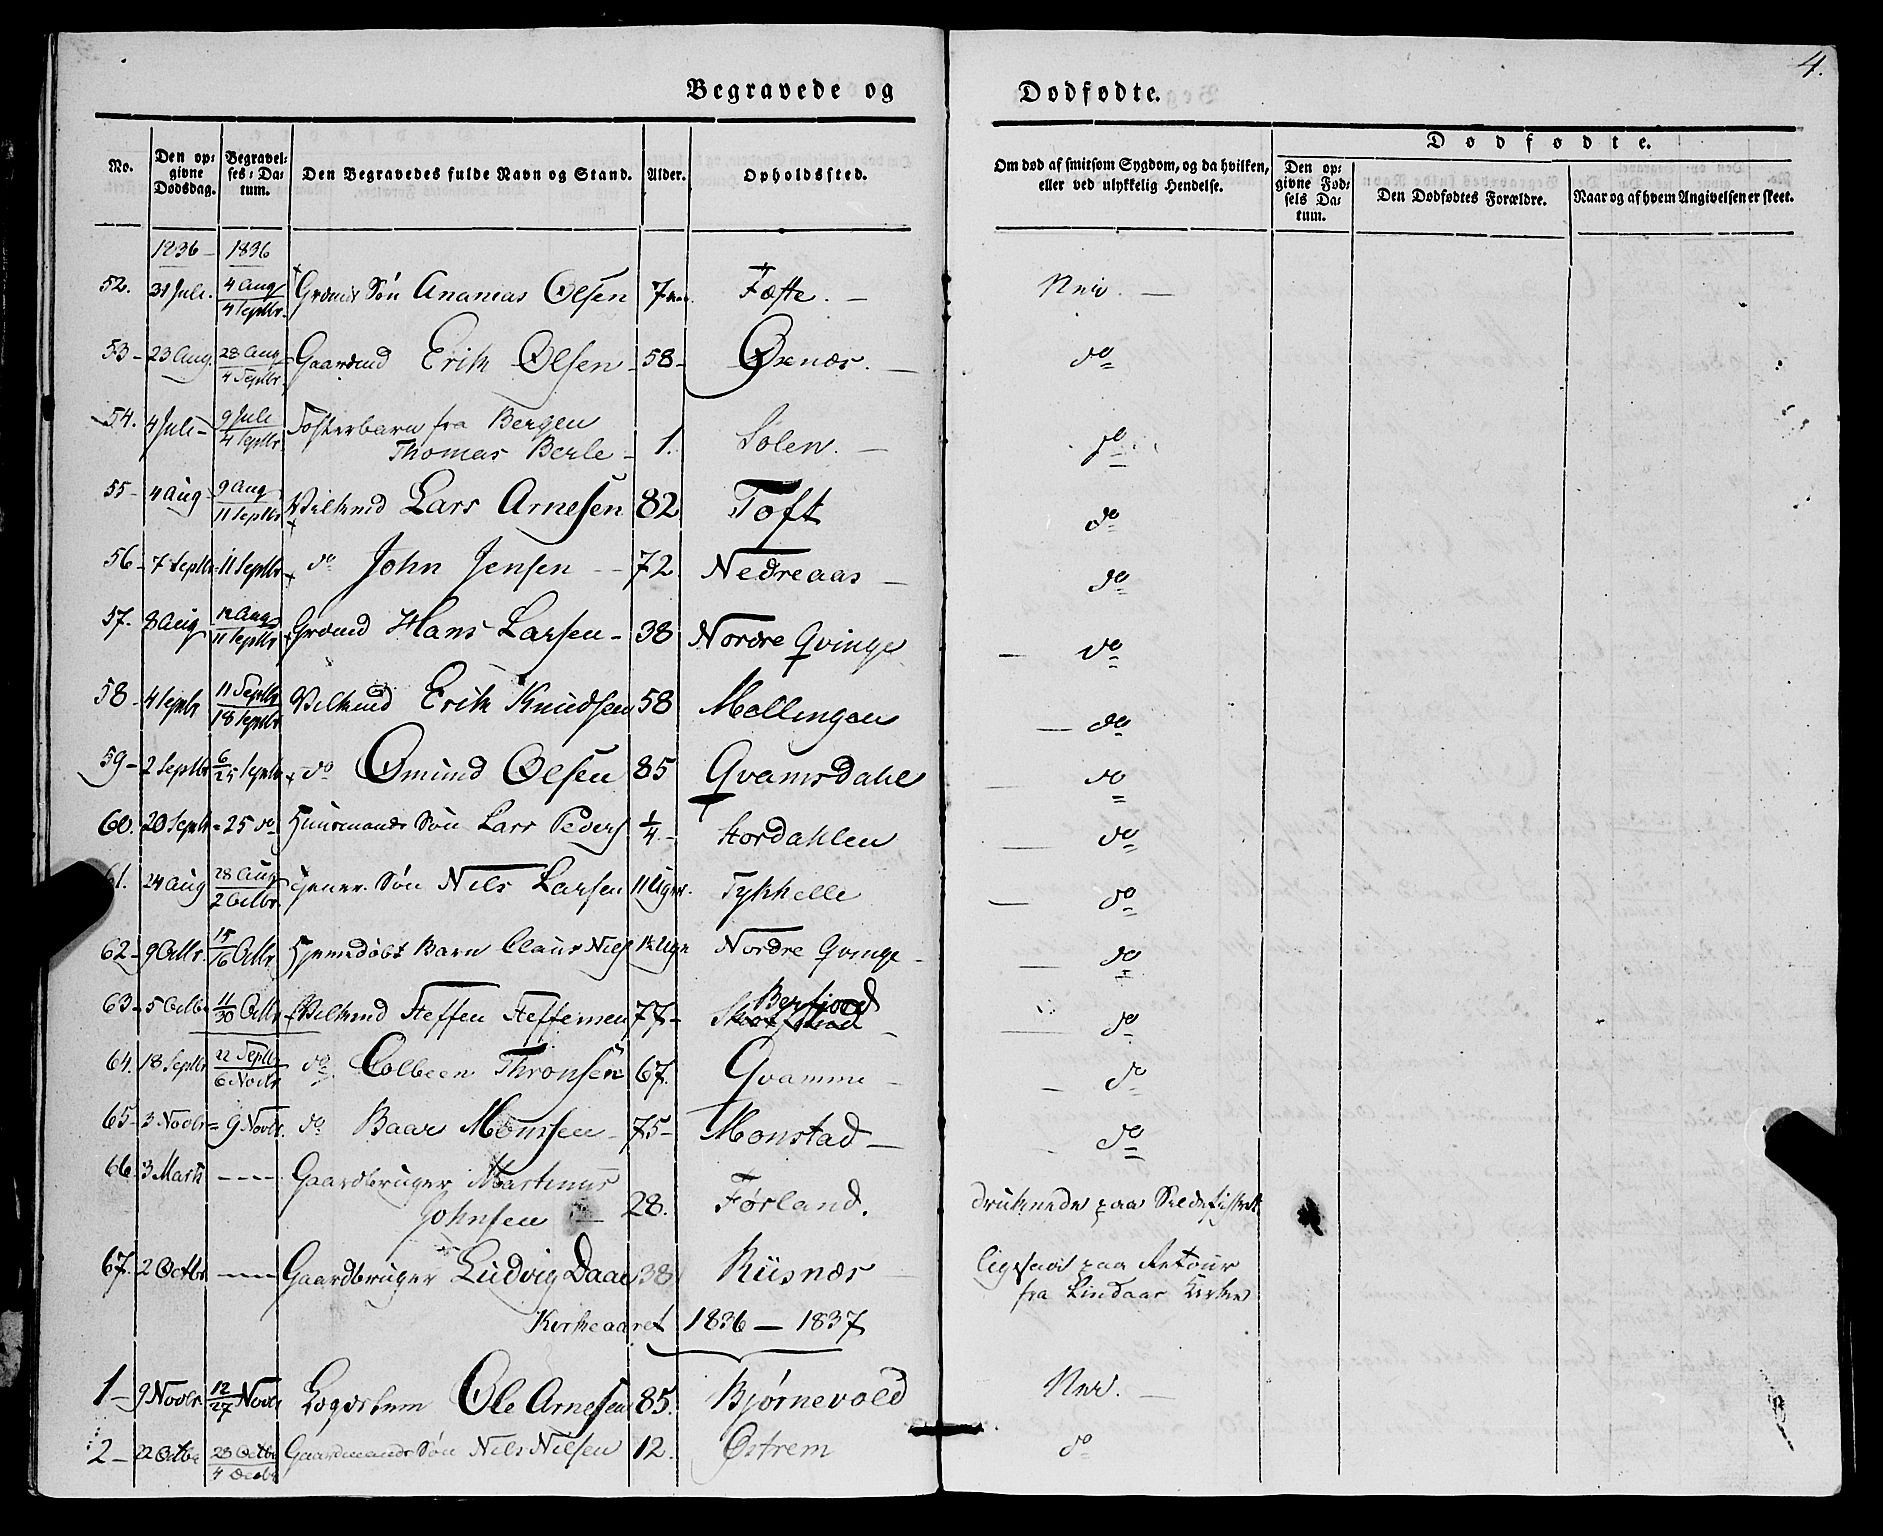 4.
Begravede og Dødfødte.
No. Den op= givne Dødsdag. Begravel= ses= Da= tum. Den Begravedes fulde Navn og Stand. Alder. Opholdssted. Om død af smitsom Sygdom, og da hvilken, eller ved ulykkelig Hendelse. Dødfødte. Den op= givne Fød= sels Da= tum. Den Dødfødtes Forældre. Naar og af hvem Angivelsen er skeet.
1836 - 1836
52. 31 Juli. 4 Aug 4 Septbr. Grdmds Søn Ananias Olsen 7 Fæste. — Nei. —
53 - 23 Aug. 28 Aug 4 Septbr. Gaardmd Erik Olsen - 58 - Oxnæs. — do
54. 4 Juli - 9 Juli 4 Septbr. Fosterbarn fra Bergen
Thomas Berle - 1. Solen. — do
55 - 4 Aug - 9 Aug 11 Septbr Vilkmd Lars Arnesen 82 Toft do
56 - 7 Septbr = 11 Septbr do John Jensen - - 72 Nedreaas — do
57. 8 Aug 12 Aug 11 Septbr Grdmd Hans Larsen - 38 Nordre Qvinge — do
58 - 4 Septbr 11 Septbr 18 Septbr Vilkmd Erik Knudsen 58 Mollingen — do
59 - 2 Septbr 6/25 Septbr do Omund Olsen 85 Qvamsdahl do
60. 20 Septbr = 25 do Huusmands Søn Lars Peders 1/4 - Stordahlen do
61. 24 Aug 28 Aug 2 Octbr. Søn Nils Larsen 11 Uger. Tykhelle — do
62 - 9 Octbr. 15/16 Octbr. Hjemdøbt Barn Claus Niels Uge Nordre Qvinge - do
63 - 5 Octbr 11/30 Octbr Vilkmd Steffen Steffensen 77 - Berfiord do
64. 18 Septbr 22 Septbr 6 Novbr do Colbeen Thronsen 67. Qvamme — do
65 - 3 Novbr = 9 Novbr. do Baar Monssen - 75 - Monstad — do
66. 3 Marts - - - - Gaardbruger Martinus
Johnsen — 28. Førland. druknede paa Sildefisket
67. 2 Octbr - - - - Gaardbruger Ludvig Daae 38 Riisnæs ligesaa paa Retour
fra Lindaas Kirke
Kirkeaaret 1836 — 1837
1 - 9 Novbr. 12/27 Novbr Logdslem Ole Arnesen 85. Bjørnevold Nei. —
2 - 22 Octbr 28 Octbr 4 Decbr Gaardmands Søn Nils Nilsen 12. Østrem do